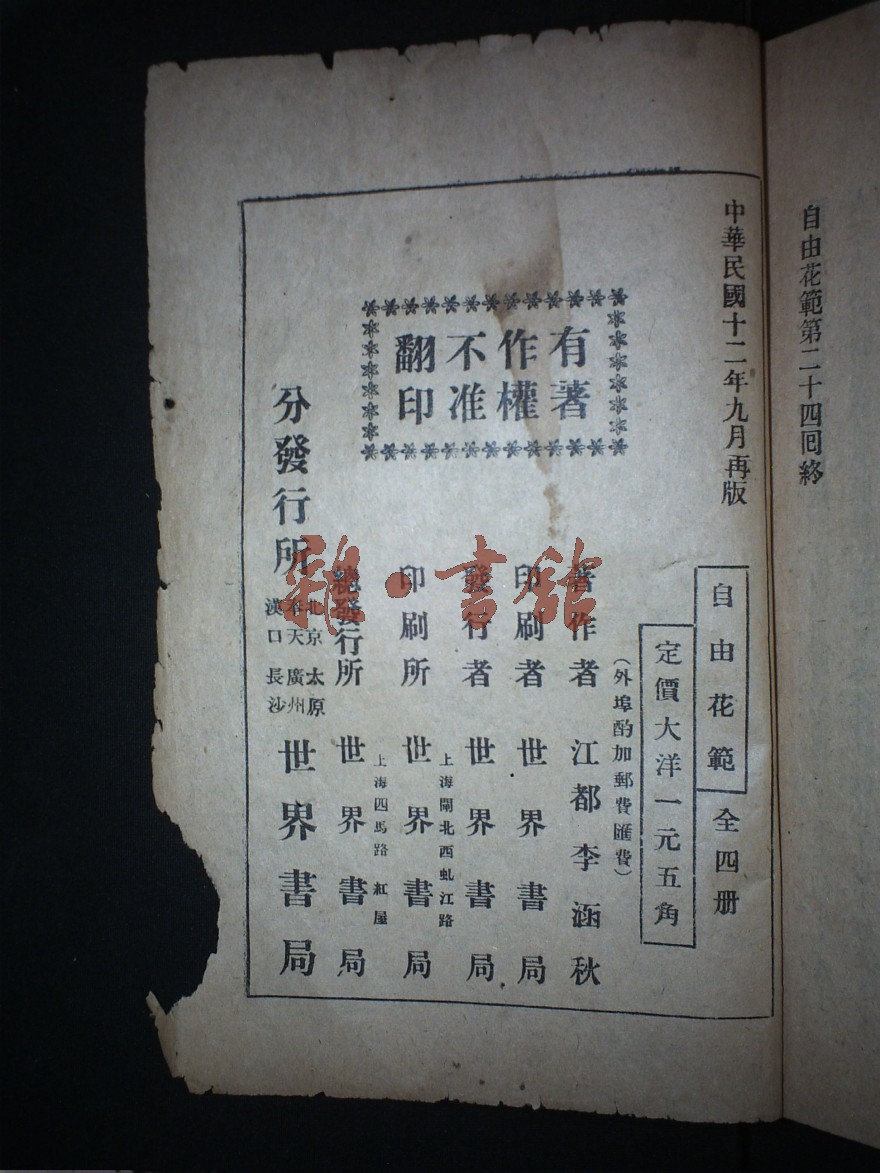 自由花範第二十四囘終
中華民國十二年九月再版
自由花範 全四册
定價大洋一元五角
(外埠酌加郵費匯費)
有著
作權
不准
翻印
著作者 江都李涵秋
印刷者 世界書局
發行者 世界書局
上海閘北西虬江路
印刷所 世界書局
上海四馬路紅屋
總發行所 世界書局
分發行所
北京 太原
奉天 廣州
漢口 長沙
世界書局
雜·書館